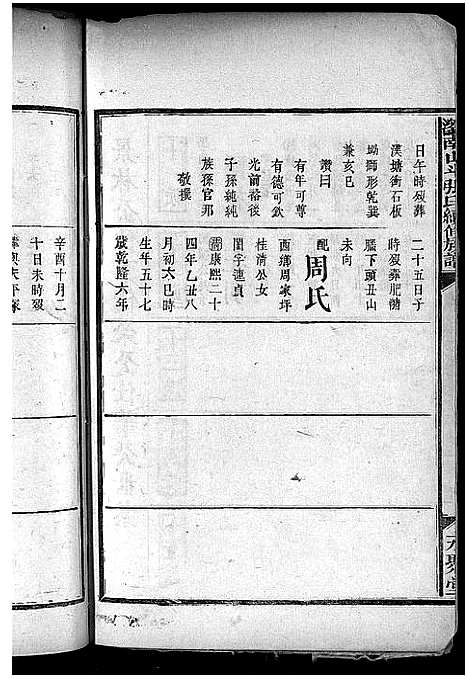 日午時歿葬
漢塘衝石板
坳獅形乾巽
兼亥巳
讚曰
有年可尊
有德可欽
光前裕後
子孫純純
族孫官邦
敬撰
二十五日子
時歿葬肥
腦下頭丑山
未向
配
周氏
西鄉周家坪
桂清公女
閨字連貞
康熙二十
四年乙丑八
月初六巳時
生年五十七
歲乾隆六年
辛酉十月二
十日未時歿
氏續修族譜
聚堂